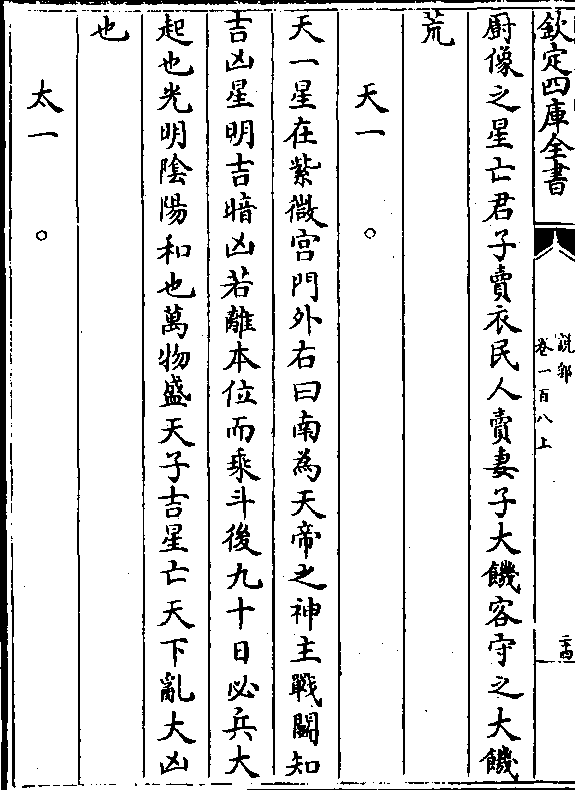 欽定四庫全書
說郛
卷一百八上
二十四
厨像之星亡君子賣衣民人賣妻子大饑客守之大饑
荒
天一 。
天一星在紫微宫門外右曰南為天帝之神主戰鬬知
吉凶星明吉暗凶若離本位而乘斗後九十日必兵大
起也光明陰陽和也萬物盛天子吉星亡天下亂大凶
也
太一 。